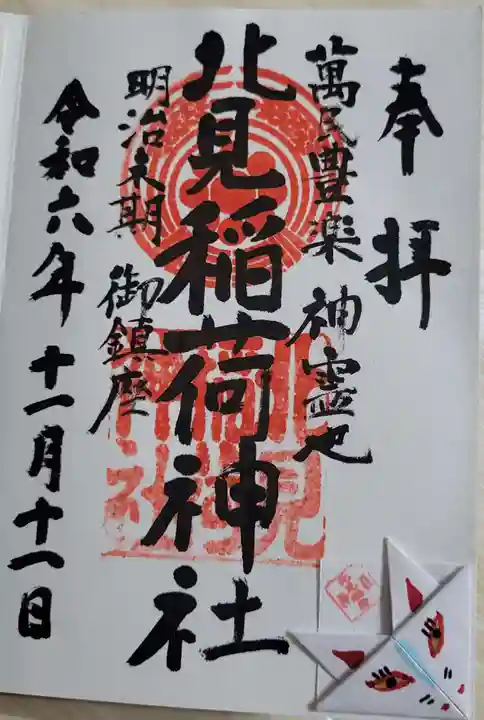 奉拝
萬民豊楽 神霊也
北見稲荷神社
明治末期 御鎮座
令和六年十一月十一日
北見稲荷神社